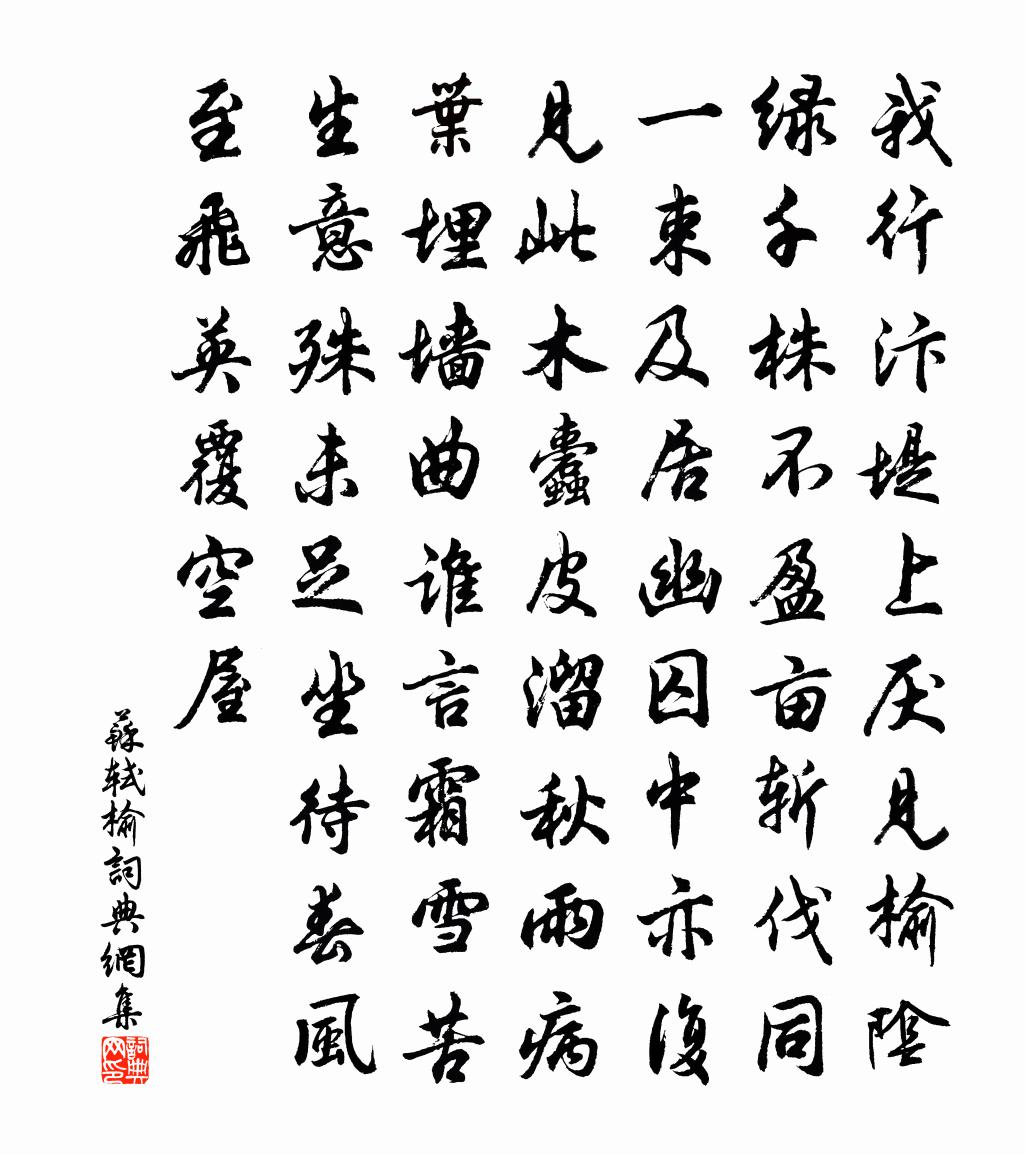 我行汴堤上厌見榆陰
緑千株不盈亩斬伐同
一束及居幽囚中亦復
見此木蠹皮溜秋雨病
葉埋墙曲谁言霜雪苦
生意殊未足坐待春風
至飛英覆空屋
蘇轼榆詞典網集
詞典网印